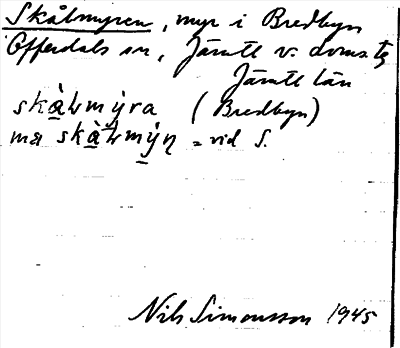 Skålmyren, myr i Bredbyn
Offerdals sn, Jämtl v. doms tg
Jämtl län
skàłmýra (Bredbyn)
ma skàłmýn = vid S.
Nils Simonsson 1945